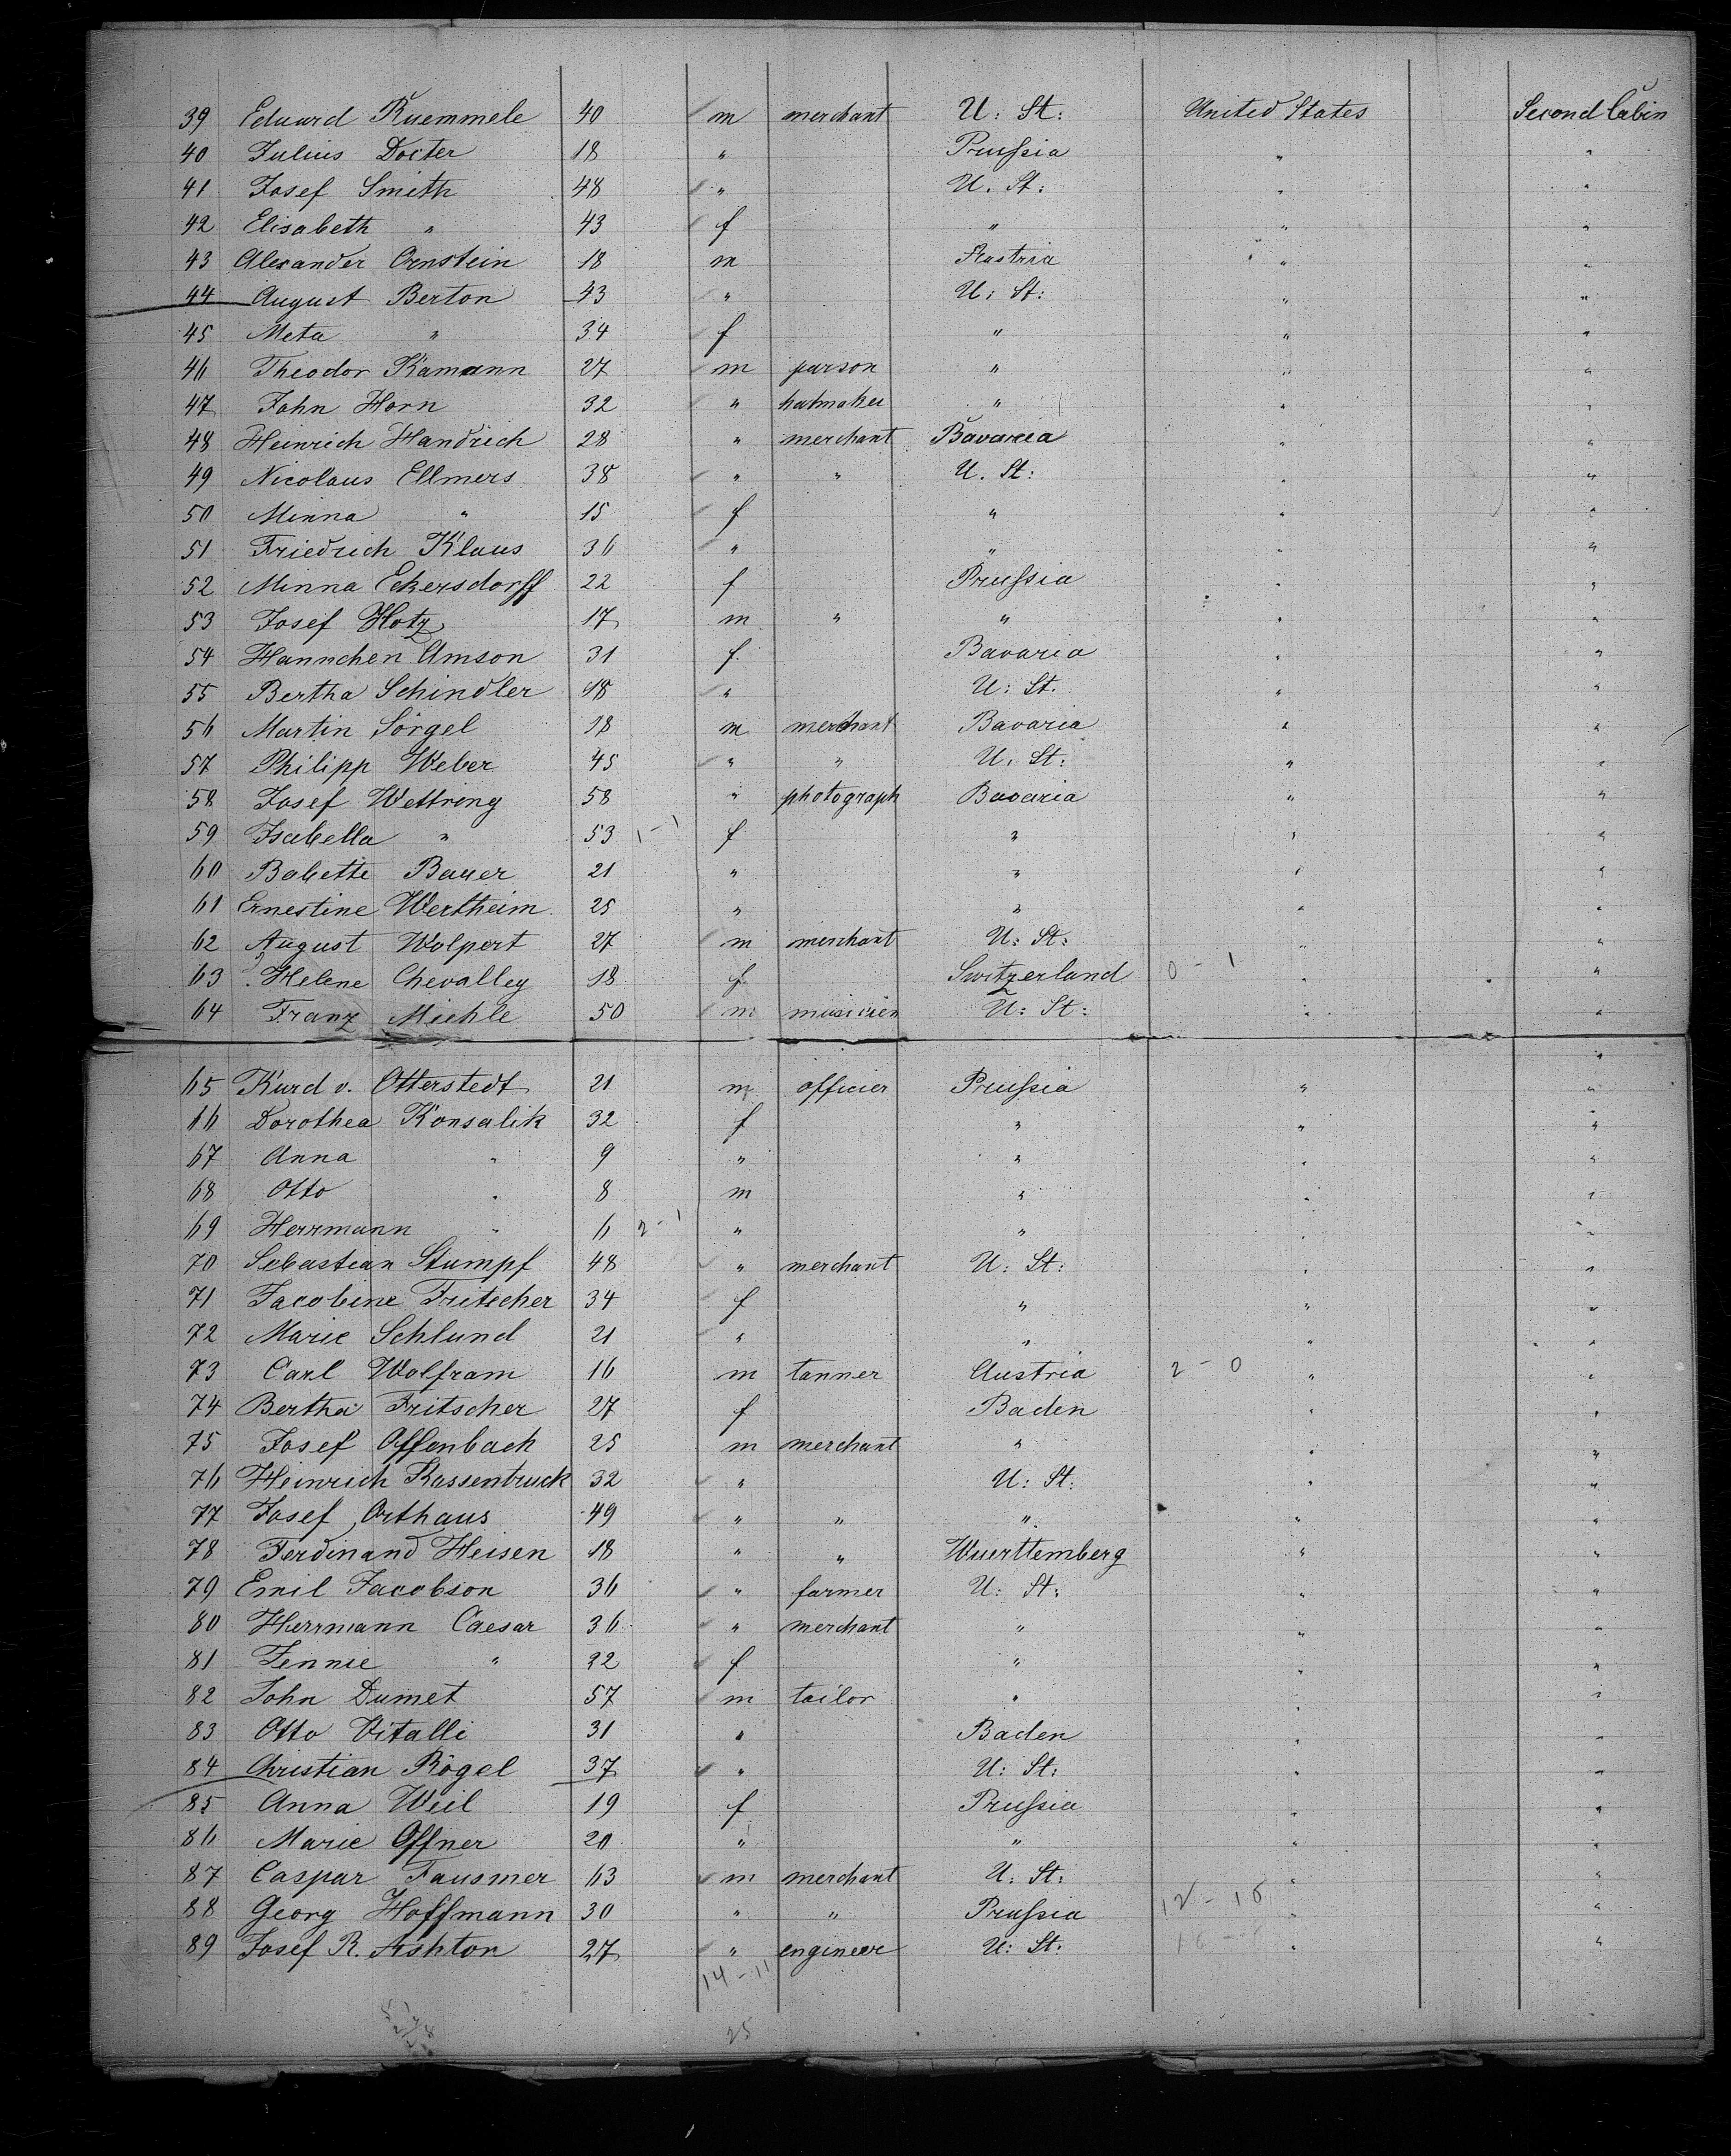 39 Eduard Ruemmele 40 m merchant U: St: United States Second Cabin
40 Julius Docter 18 " Prussia " "
41 Josef Smith 48 " U. St: " "
42 Elisabeth " 43 f " " "
43 Alexander Ornstein 18 m Austria " "
44 August Berton 43 " U: St: " "
45 Meta " 34 f " " "
46 Theodor Kamann 27 m parson " " "
47 John Horn 32 " hatmaker " " "
48 Heinrich Handrich 28 " merchant Bavaria " "
49 Nicolaus Ellmers 38 " " U. St: " "
50 Minna " 15 f " " "
51 Friedrich Klaus 36 " " " "
52 Minna Eckersdorff 22 f Prussia " "
53 Josef Hotz 17 m " " " "
54 Hannchen Amson 31 f. Bavaria " "
55 Bertha Schindler 48 " U: St. " "
56 Martin Sörgel 18 m merchant Bavaria " "
57 Philipp Weber 45 " " U. St: " "
58 Josef Wettring 58 " photograph Bavaria " "
59 Isabella " 53 1-1 f " " "
60 Babette Bauer 21 " " " "
61 Ernestine Wertheim 25 " " " "
62 August Wolpert 27 m merchant U: St: " "
63 Helene Chevalley 18 f Switzerland 0-1 " "
64 Franz Miehle 50 m musicien U: St: " "
65 Kurd v. Otterstedt 21 m officier Prussia " "
66 Dorothea Konsalik 32 f " " "
67 Anna " 9 " " " "
68 Otto " 8 m " " "
69 Herrmann " 6 2-1 " " " "
70 Sebastian Stumpf 48 " merchant U: St: " "
71 Jacobine Fritscher 34 f " " "
72 Marie Schlund 21 " " " "
73 Carl Wolfram 16 m tanner Austria 2-0 " "
74 Bertha Fritscher 27 f Baden " "
75 Josef Offenbach 25 m merchant " " "
76 Heinrich Kassentruck 32 " U: St: " "
77 Josef Orthaus 49 " " " " "
78 Ferdinand Heisen 18 " " Wuerttemberg " "
79 Emil Jacobson 36 " farmer U: St: " "
80 Herrmann Caesar 36 " merchant " " "
81 Jennie " 22 f " " "
82 John Dumet 57 m tailor " " "
83 Otto Vitalli 31 " Baden " "
84 Christian Rögel 37 " U: St: " "
85 Anna Weil 19 f Prussia " "
86 Marie Offner 20 " " " "
87 Caspar Fausmer 63 m merchant U: St: " "
88 Georg Hoffmann 30 " " Prussia 12-16 " "
89 Josef R. Ashton 27 " engineer U: St: " "
14-11
25